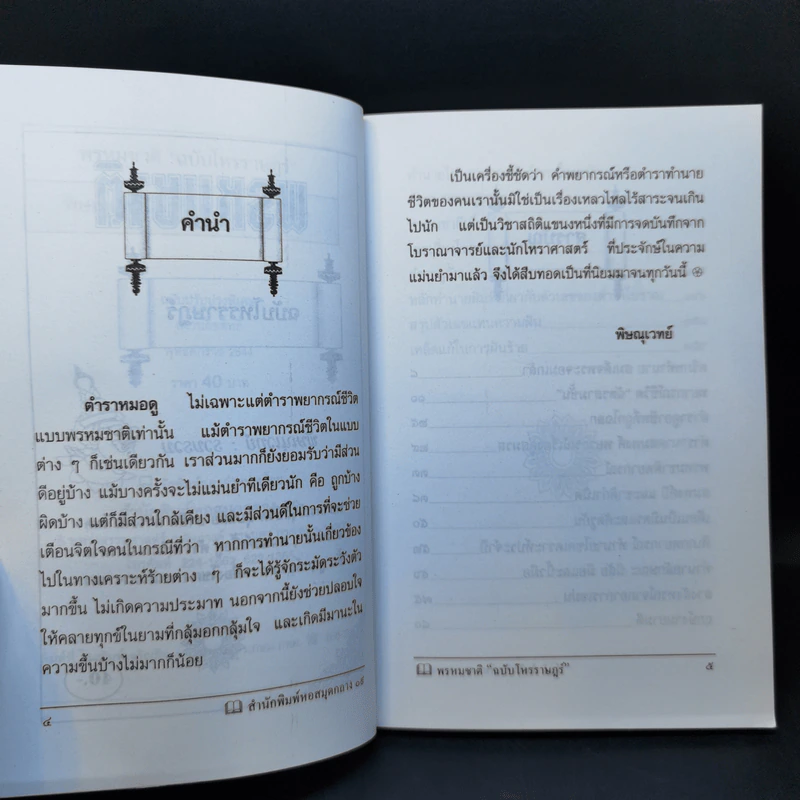 คำนำ
ตำราหมอดู ไม่เฉพาะแต่ตำราพยากรณ์ชีวิต
แบบพรหมชาติเท่านั้น แม้ตำราพยากรณ์ชีวิตในแบบ
ต่าง ๆ ก็เช่นเดียวกัน เราส่วนมากก็ยังยอมรับว่ามีส่วน
ดีอยู่บ้าง แม้บางครั้งจะไม่แม่นยำทีเดียวนัก คือ ถูกบ้าง
ผิดบ้าง แต่ก็มีส่วนใกล้เคียง และมีส่วนดีในการที่จะช่วย
เตือนจิตใจคนในกรณีที่ว่า หากการทำนายนั้นเกี่ยวข้อง
ไปในทางเคราะห์ร้ายต่าง ๆ ก็จะได้รู้จักระมัดระวังตัว
มากขึ้น ไม่เกิดความประมาท นอกจากนี้ยังช่วยปลอบใจ
ให้คลายทุกข์ในยามที่กลุ้มอกกลุ้มใจ และเกิดมีมานะใน
ความขึ้นบ้างไม่มากก็น้อย
๔ สำนักพิมพ์หอสมุดกลาง ๐๙
เป็นเครื่องชี้ชัดว่า คำพยากรณ์หรือตำราทำนาย
ชีวิตของคนเรานั้นมิใช่เป็นเรื่องเหลวไหลไร้สาระจนเกิน
ไปนัก แต่เป็นวิชาสถิติแขนงหนึ่งที่มีการจดบันทึกจาก
โบราณาจารย์และนักโหราศาสตร์ ที่ประจักษ์ในความ
แม่นยำมาแล้ว จึงได้สืบทอดเป็นที่นิยมมาจนทุกวันนี้
พิษณุเวทย์
พรหมชาติ "ฉบับโหรราษฎร์" ๕